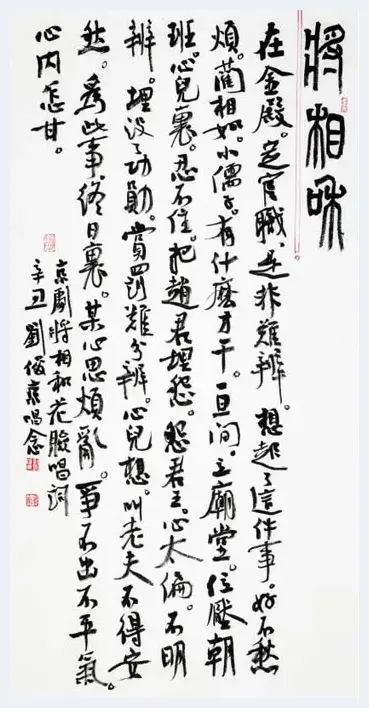 將相和
在金殿。定官職、是非難辨。想起了這件事。好不愁
煩。藺相如。小儒子。有什麽才干。一旦间。立廟堂。位壓朝
班。心兒裏。忍不住。把趙君埋怨。怨君王。心太偏。不明
辨。埋没了功勛。賞罰難分辨。心兒想。叫老夫不得安
然。爲此事、終日裏。某心思煩亂。爭不出不平氣。
心内怎甘。
京劇將相和花臉唱詞
辛丑 劉俊京唱念